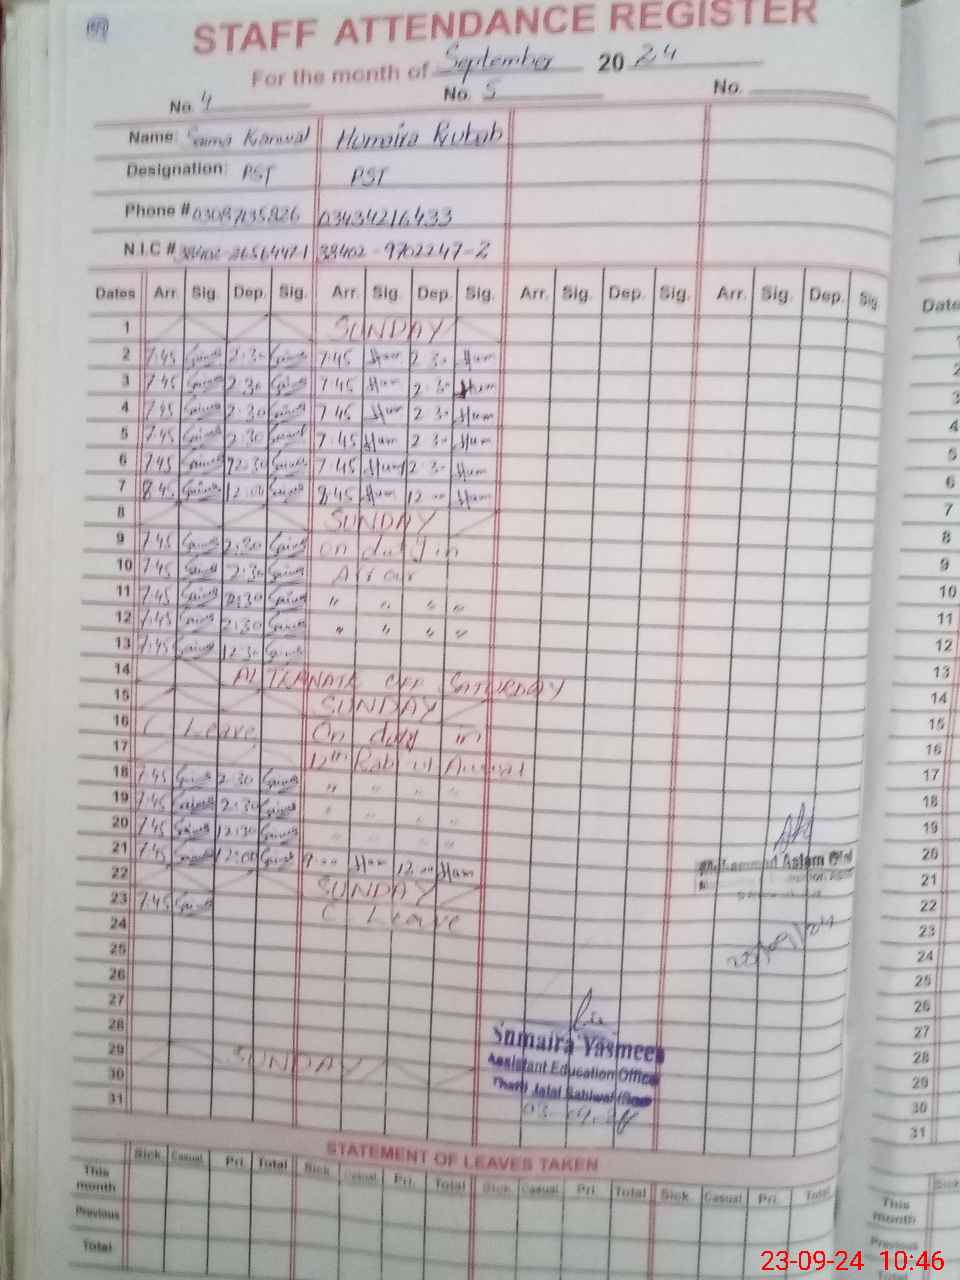 STAFF ATTENDANCE REGISTER
For the month of September 2024
No. 4 No. 5 No.
Name: Saima Kanwal Humaira Rubab
Designation: PST PST
Phone # 03087135826 03434216433
N.I.C # 38402-9702247-2
Dates Arr. Sig. Dep. Sig. Arr. Sig. Dep. Sig. Arr. Sig. Dep. Sig. Arr. Sig. Dep. Sig
1 SUNDAY
2 7:45 Saima 2:30 Saima 7:45 Hum 2:30 Hum
3 7:45 Saima 2:30 Saima 7:45 Hum 2:30 Hum
4 7:45 Saima 2:30 Saima 7:45 Hum 2:30 Hum
5 7:45 Saima 2:30 Saima 7:45 Hum 2:30 Hum
6 7:45 Saima 12:30 Saima 7:45 Hum 2:30 Hum
7 8:45 Saima 12:00 Saima 8:45 Hum 12:00 Hum
8 SUNDAY
9 7:45 Saima 2:30 Saima on duty in
10 7:45 Saima 2:30 Saima
11 7:45 Saima 2:30 Saima " " " "
12 7:45 Saima 2:30 Saima " " " "
13 7:45 Saima 12:30 Saima
14 ALTERNATE OFF SATURDAY
15 SUNDAY
16 C Leave On duty in
17 12th Rabi ul Awwal
18 7:45 Saima 2:30 Saima " " " "
19 7:45 Saima 2:30 Saima " " " "
20 7:45 Saima 12:30 Saima " " " "
21 7:45 Saima 12:00 Saima 9:00 Hum 12:00 Hum
22 SUNDAY
23 7:45 Saima C Leave
24
25
26
27
28
29 SUNDAY
30
31
Aslam
Sumaira Yasmeen
Assistant Education Officer
STATEMENT OF LEAVES TAKEN
Sick Casual Pri. Total Sick Casual Pri. Total Sick Casual Pri Total Sick Casual Pri. Total
This month
Previous
Total
Date
1
2
3
4
5
6
7
8
9
10
11
12
13
14
15
16
17
18
19
20
21
22
23
24
25
26
27
28
29
30
31
This month
Previous
Total
23-09-24 10:46